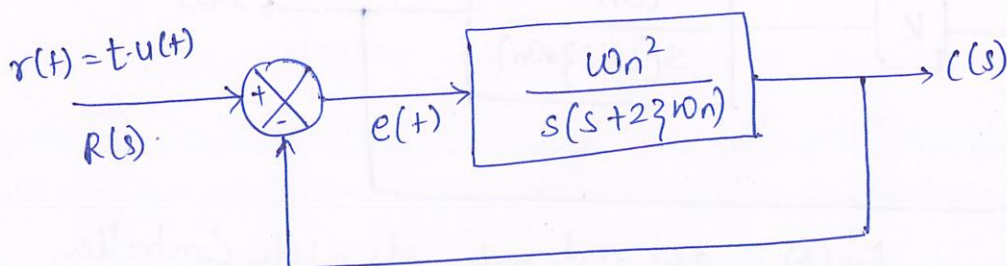 r(t) = t·u(t)
R(s)
+
-
e(t)
ωn²
s(s+2ζωn)
C(s)